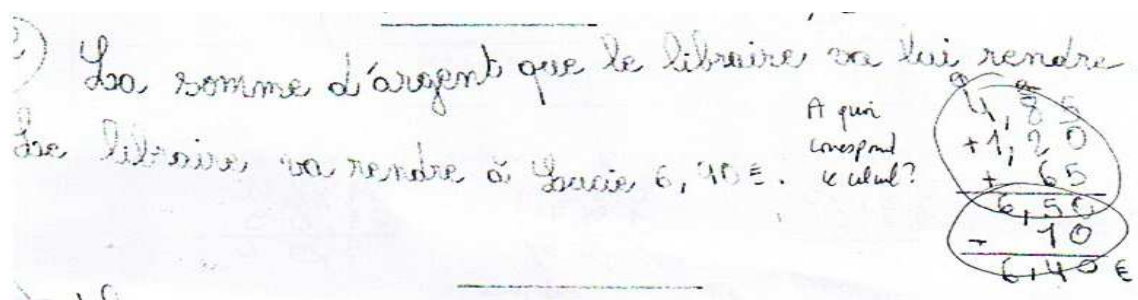 c) La somme d'argent que le libraire va lui rendre
Le libraire va rendre à Lucie 6,40 €.
A quoi
correspond
ce calcul?
4,85
+1,20
+ 65
6,50
- 10
6,40 €